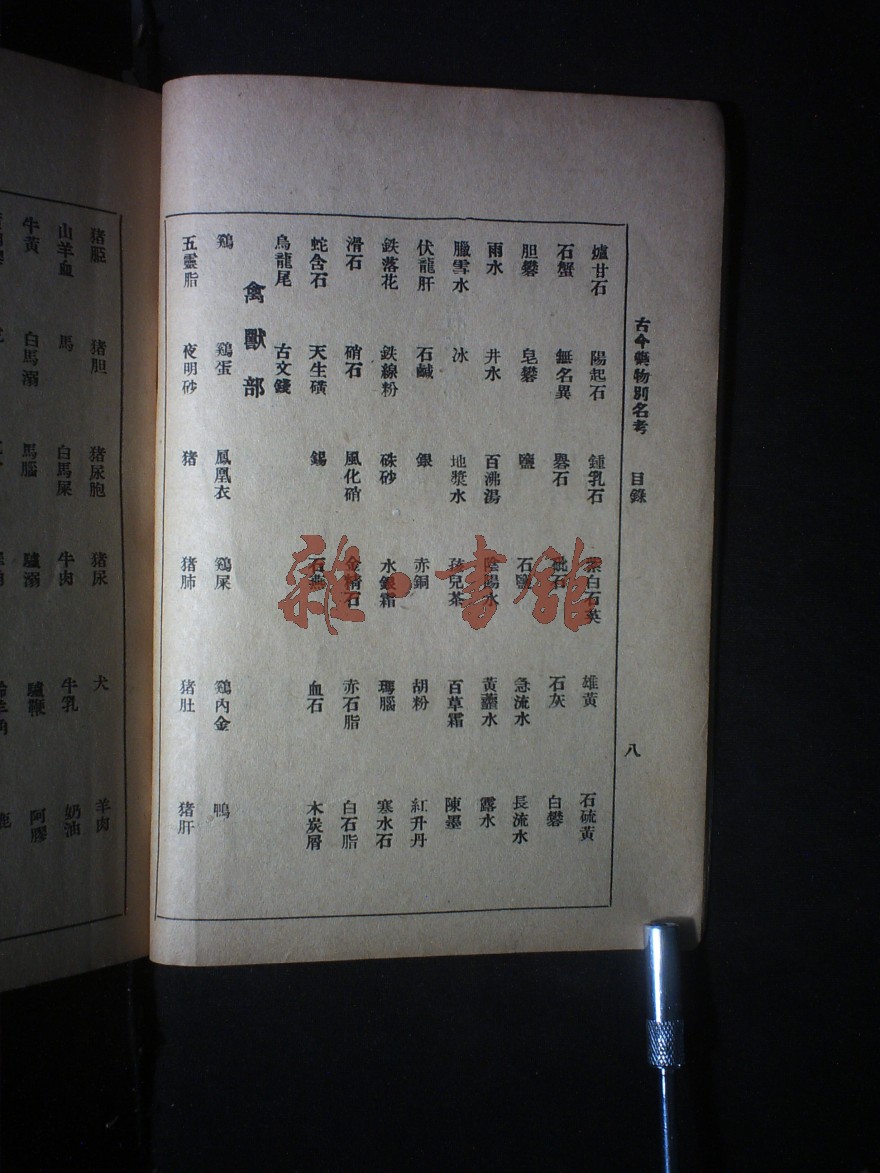 古今藥物別名考 目錄 八
爐甘石 陽起石 鍾乳石 紫白石英 雄黃 石硫黃
石蟹 無名異 礜石 砒石 石灰 白礬
胆礬 皂礬 鹽 石鹽 急流水 長流水
雨水 井水 百沸湯 陰陽水 黃虀水 露水
臘雪水 冰 地漿水 孩兒茶 百草霜 陳墨
伏龍肝 石鹹 銀 赤銅 胡粉 紅升丹
鉄落花 鉄線粉 硃砂 水銀霜 瑪腦 寒水石
滑石 硝石 風化硝 金精石 赤石脂 白石脂
蛇含石 天生磺 錫 石燕 血石 木炭屑
烏龍尾 古文錢
禽獸部
鷄 鷄蛋 鳳凰衣 鷄屎 鷄內金 鴨
五靈脂 夜明砂 猪 猪肺 猪肚 猪肝
猪胆 猪尿胞 猪尿 犬 羊肉
山羊血 馬 白馬屎 牛肉 牛乳 奶油
牛黃 白馬溺 馬腦 驢溺 驢鞭 阿膠
雜·書館